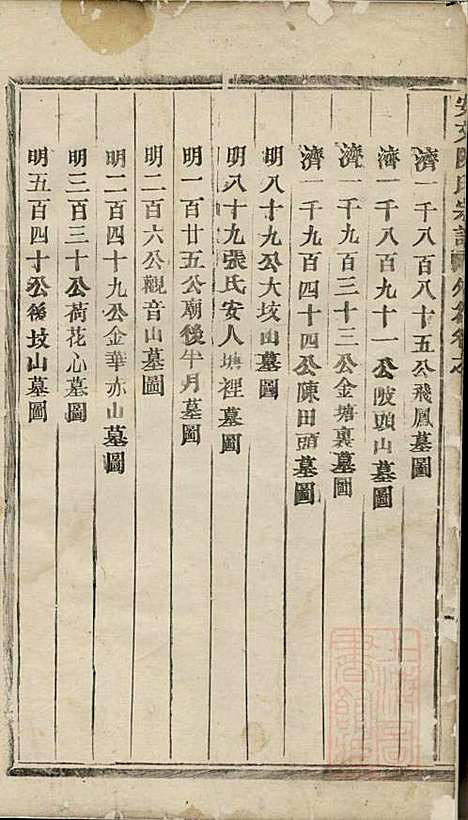 安文陳氏宗譜
濟一千八百八十五公飛鳳墓圖
濟一千八百九十一公陂頭山墓圖
濟一千九百三十三公金塘裏墓圖
濟一千九百四十四公陳田頭墓圖
明八十九公大坟山墓圖
明八十九張氏安人塘裡墓圖
明一百廿五公廟後半月墓圖
明二百六公觀音山墓圖
明二百四十九公金華赤山墓圖
明三百三十公荷花心墓圖
明五百四十公後坟山墓圖